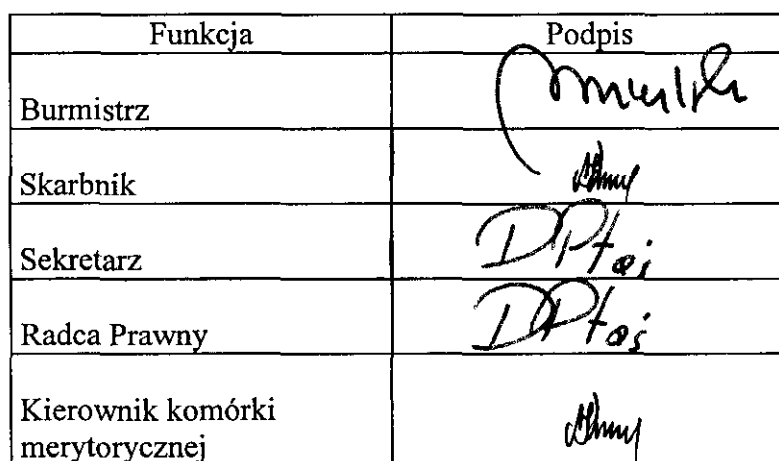 Funkcja Podpis
Burmistrz
Skarbnik
Sekretarz DPtaś
Radca Prawny DPtaś
Kierownik komórki
merytorycznej